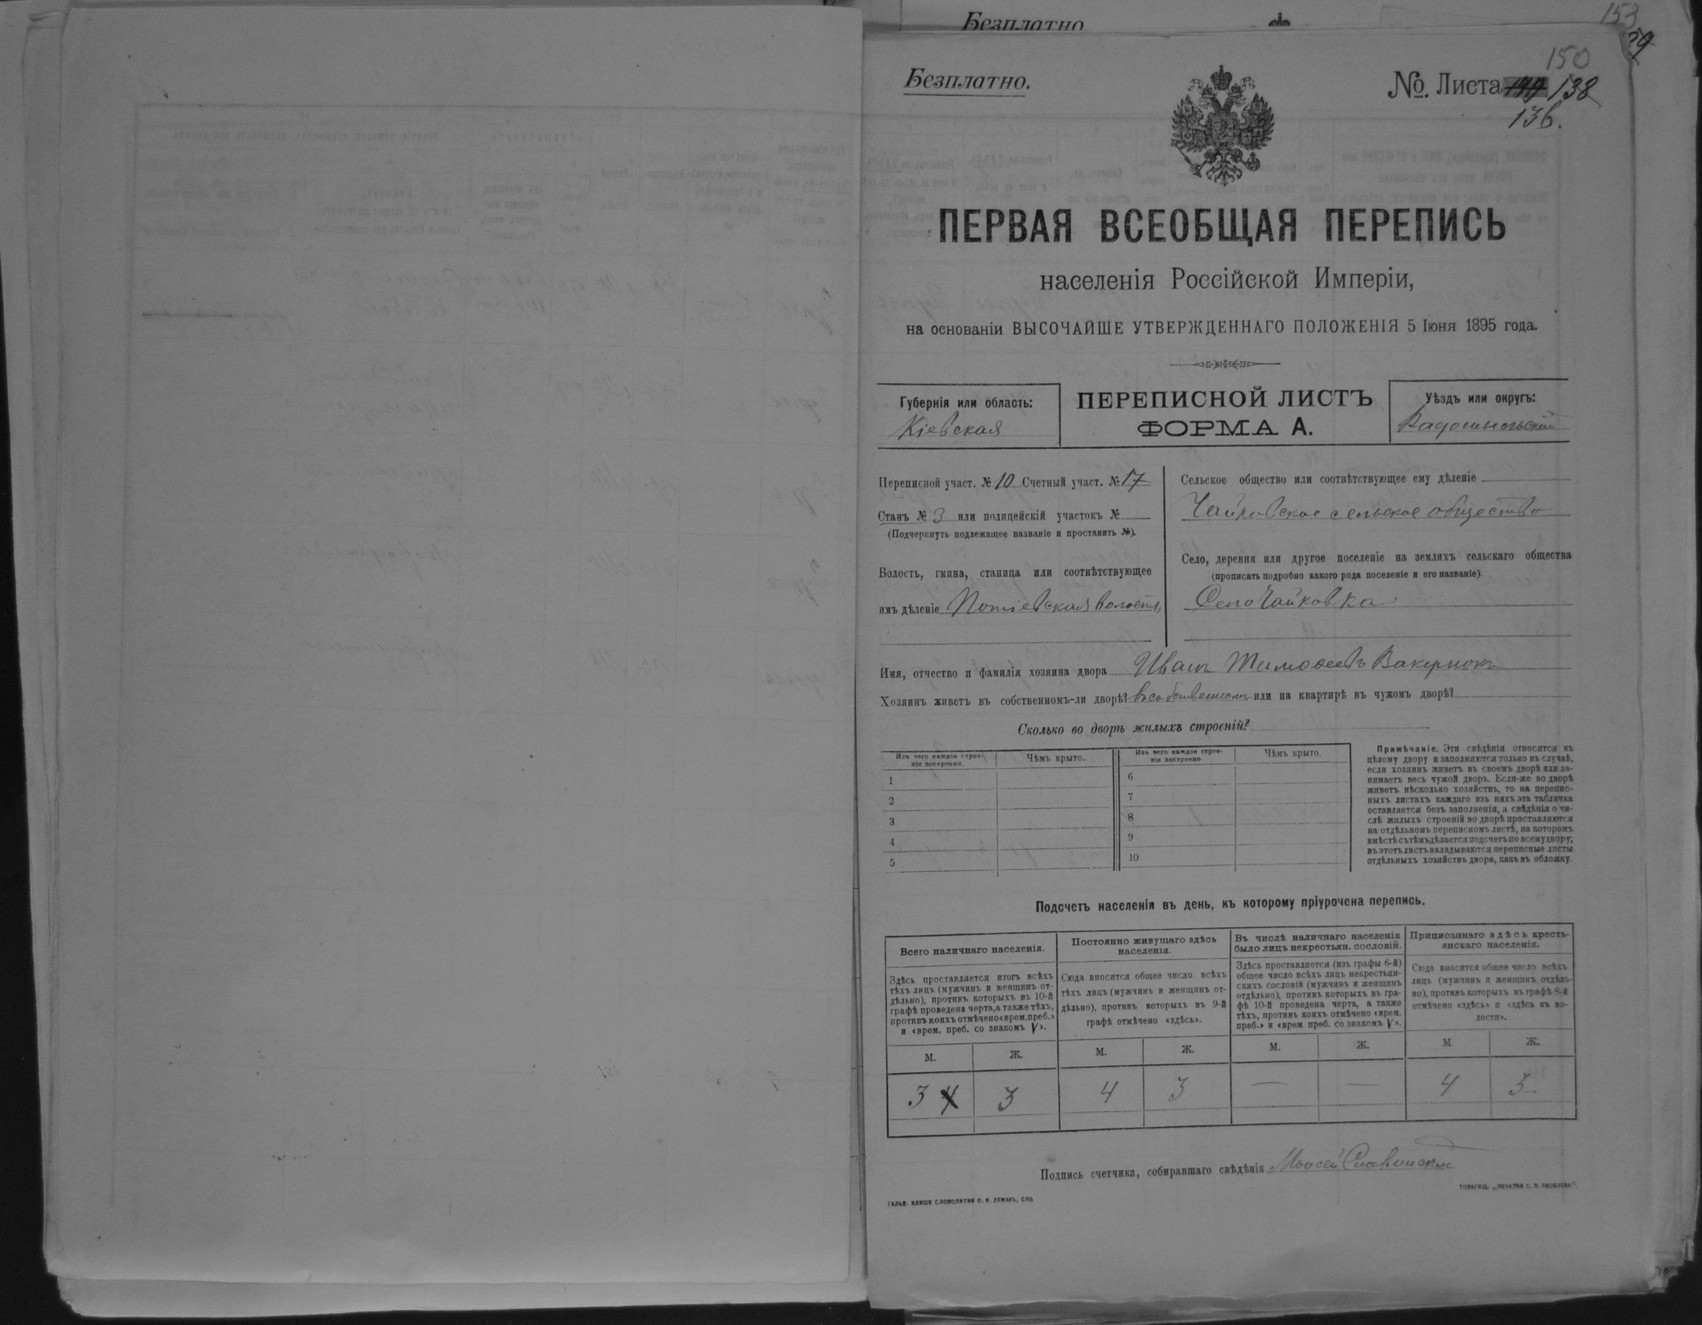 Безплатно
153
Безплатно.
150
№. Листа 138
136.
ПЕРВАЯ ВСЕОБЩАЯ ПЕРЕПИСЬ
населенія Россійской Имперіи,
на основаніи ВЫСОЧАЙШЕ УТВЕРЖДЕННАГО ПОЛОЖЕНІЯ 5 Іюня 1895 года.
Губернія или область:
Кіевская
ПЕРЕПИСНОЙ ЛИСТЪ
ФОРМА А.
Уѣздъ или округъ:
Радомысльскій
Переписной участ. № 10 Счетный участ. № 17
Станъ № 3 или полицейскій участокъ №
(Подчеркнуть подлежащее названіе и проставить №).
Волость, гмина, станица или соотвѣтствующее
имъ дѣленіе Потіевская волость
Сельское общество или соотвѣтствующее ему дѣленіе
Чайковское сельское общество
Село, деревня или другое поселеніе на земляхъ сельскаго общества
(прописать подробно какого рода поселеніе и его названіе)
Село Чайковка
Имя, отчество и фамилія хозяина двора Иванъ Тимофеевъ
Хозяинъ живетъ въ собственномъ-ли дворѣ? въ собственномъ или на квартирѣ въ чужомъ дворѣ?
Сколько во дворѣ жилыхъ строеній?
Изъ чего каждое строе-
ніе построено.
Чѣмъ крыто.
1
2
3
4
5
Изъ чего каждое строе-
ніе построено
Чѣмъ крыто.
6
7
8
9
10
Примѣчаніе. Эти свѣдѣнія относятся къ
цѣлому двору и заполняются только въ случаѣ,
если хозяинъ живетъ въ своемъ дворѣ или за-
нимаетъ весь чужой дворъ. Если-же во дворѣ
живетъ нѣсколько хозяйствъ, то на перепис-
ныхъ листахъ каждаго изъ нихъ эта табличка
оставляется безъ заполненія, а свѣдѣнія о чи-
слѣ жилыхъ строеній во дворѣ проставляются
на отдѣльномъ переписномъ листѣ, на которомъ
вмѣстѣ съ тѣмъ дѣлается подсчетъ по всему двору;
въ этотъ листъ вкладываются переписные листы
отдѣльныхъ хозяйствъ двора, какъ въ обложку.
Подсчетъ населенія въ день, къ которому пріурочена перепись.
Всего наличнаго населенія.
Здѣсь проставляется итогъ всѣхъ
тѣхъ лицъ (мужчинъ и женщинъ от-
дѣльно), противъ которыхъ въ 10-й
графѣ проведена черта, а также тѣхъ,
противъ коихъ отмѣчено «врем. преб.»
и «врем. преб. со знакомъ V».
М. Ж.
3 4 3
Постоянно живущаго здѣсь
населенія.
Сюда вносится общее число всѣхъ
тѣхъ лицъ (мужчинъ и женщинъ от-
дѣльно), противъ которыхъ въ 9-й
графѣ отмѣчено «здѣсь».
М. Ж.
4 3
Въ числѣ наличнаго населенія
было лицъ некрестьян. сословій.
Здѣсь проставляется (изъ графы 6-й)
общее число всѣхъ лицъ некрестьян-
скихъ сословій (мужчинъ и женщинъ
отдѣльно), противъ которыхъ въ гра-
фѣ 10-й проведена черта, а также
тѣхъ, противъ коихъ отмѣчено «врем.
преб.» и «врем преб. со знакомъ V».
М. Ж.
— —
Приписаннаго здѣсь кресть-
янскаго населенія.
Сюда вносится общее число всѣхъ
лицъ (мужчинъ и женщинъ отдѣль-
но), противъ которыхъ въ графѣ 8-й
отмѣчено «здѣсь» и «здѣсь въ во-
лости».
М. Ж.
4 3
Подпись счетчика, собиравшаго свѣдѣнія Моисей Славинскій
ГАЛЬВ. КЛИШЕ СЛОВОЛИТНИ О. И. ЛЕМАНЪ, СПБ
ТОВАРИЩ. „ПЕЧАТНЯ С. П. ЯКОВЛЕВА".